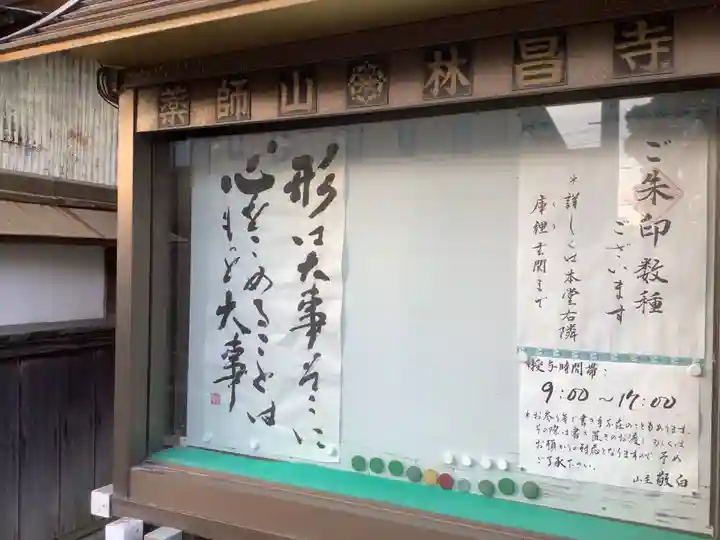 薬師山 林昌寺
ご朱印数種
ございます
*詳しくは本堂右隣
庫裡玄関まで
形は大事そこに
心をこめることは
もっと大事
授与時間帯:
9:00〜17:00
*お参り等で書き手不在のこともあります。
その際は書き置きのお渡し もしくは
お預かりの対応となりますので 予め
ご了承下さい。
山主 敬白